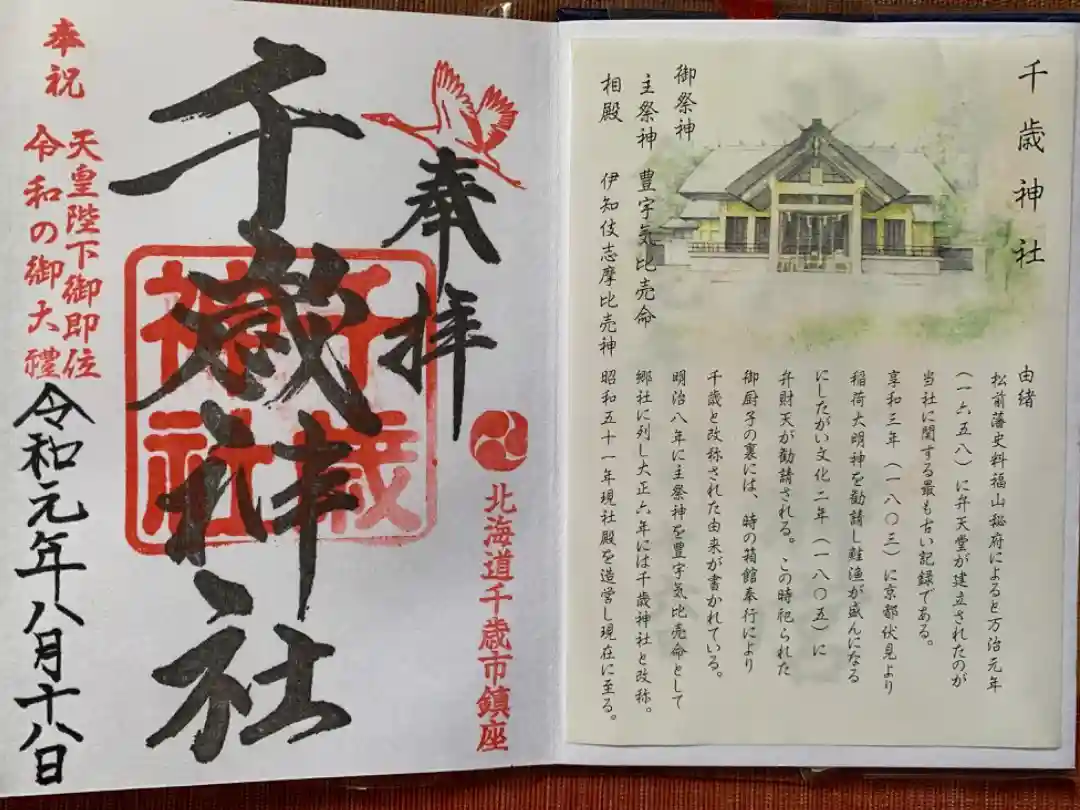 千歳神社
御祭神
主祭神 豊宇気比売命
相殿 伊知伎志摩比売神
由緒
松前藩史料福山秘府によると万治元年
(一六五八)に弁天堂が建立されたのが
当社に関する最も古い記録である。
享和三年(一八〇三)に京都伏見より
稲荷大明神を勧請し鮭漁が盛んになる
にしたがい文化二年(一八〇五)に
弁財天が勧請される。この時祀られた
御厨子の裏には、時の箱館奉行により
千歳と改称された由来が書かれている。
明治八年に主祭神を豊宇気比売命として
郷社に列し大正六年には千歳神社と改称。
昭和五十一年現社殿を造営し現在に至る。
北海道千歳市鎮座
奉拝
千歳神社
千歳
神社
奉祝
天皇陛下御即位
令和の御大禮
令和元年八月十八日